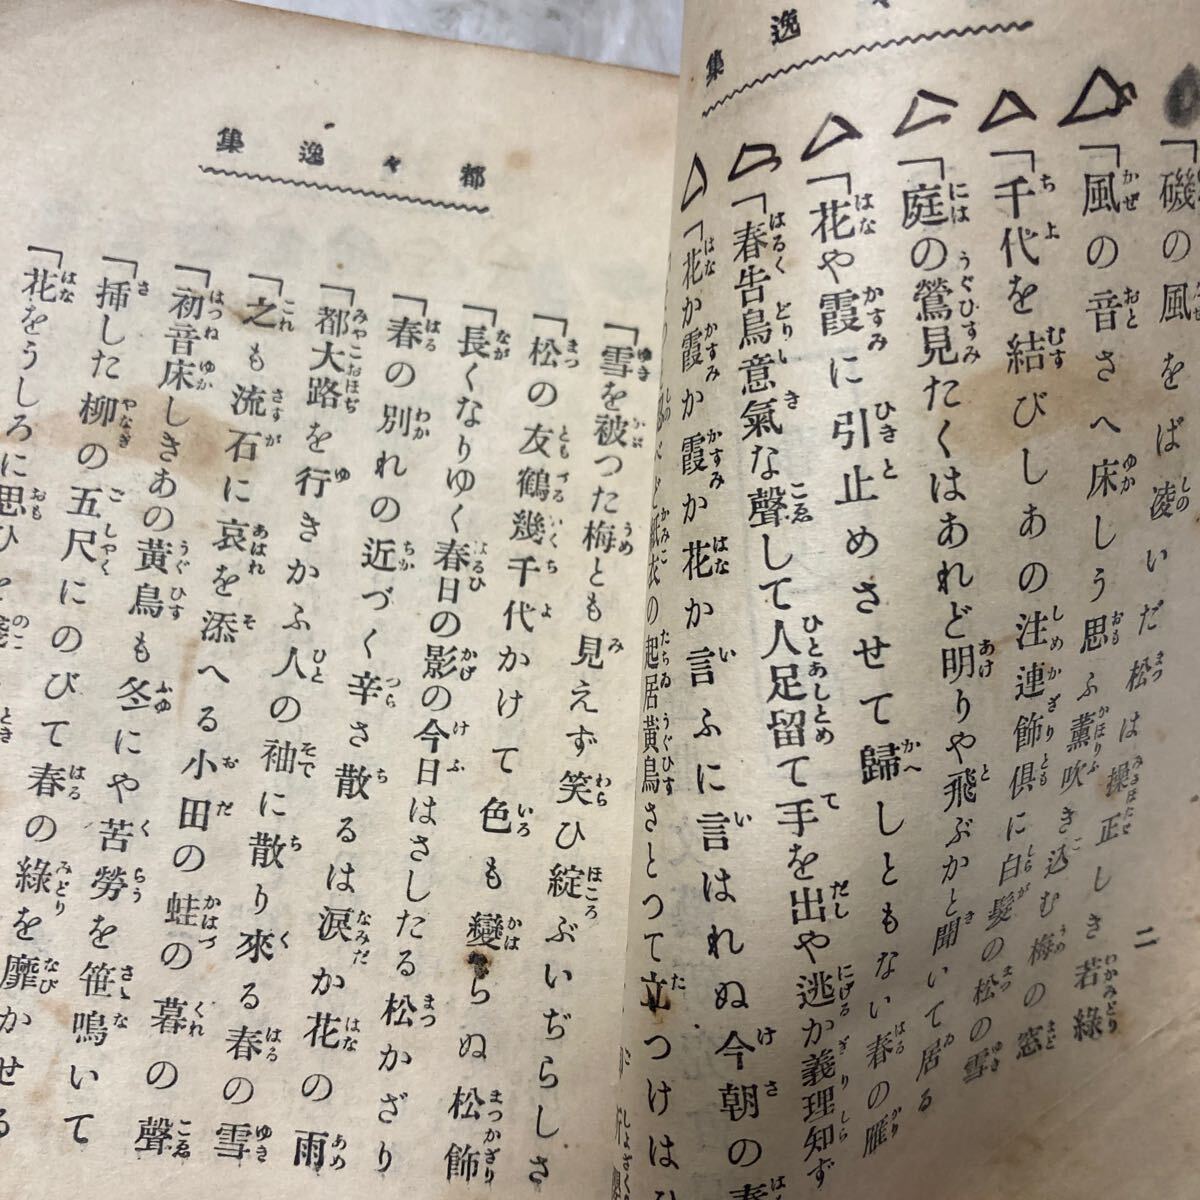 集逸々
二
「磯の風をば凌いだ松は操正しき若綠
「風の音さへ床しう思ふ薫吹き込む梅の窓
「千代を結びしあの注連飾倶に白髮の松の雪
「庭の鶯見たくはあれど明りや飛ぶかと聞いて居る
「花や霞に引止めさせて歸しともない春の雁
「春告鳥意氣な聲して人足留て手を出や逃か義理知ず
「花か霞か霞か花か言ふに言はれぬ今朝の
紙衣の起居黃鳥さとつて立つけは
集逸々都
「雪を被つた梅とも見えず笑ひ綻ぶいぢらしさ
「松の友鶴幾千代かけて色も變らぬ松飾
「長くなりゆく春日の影の今日はさしたる松かざり
「春の別れの近づく辛さ散るは淚か花の雨
「都大路を行きかふ人の袖に散り來る春の雪
「之も流石に哀を添へる小田の蛙の暮の聲
「初音床しきあの黃鳥も冬にや苦勞を笹鳴いて
「挿した柳の五尺にのびて春の綠を靡かせる
「花をうしろに思ひを